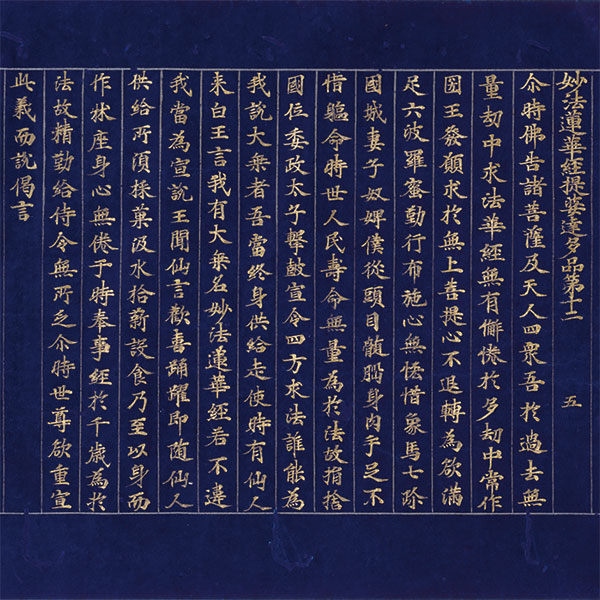 妙法蓮華經提婆達多品第十二
五
尒時佛告諸菩薩及天人四衆吾於過去無
量劫中求法華經無有懈惓於多劫中常作
國王發願求於無上菩提心不退轉為欲滿
足六波羅蜜勤行布施心無悋惜象馬七珎
國城妻子奴婢僕從頭目髓腦身肉手足不
惜軀命時世人民壽命無量為於法故捐捨
國位委政太子擊鼓宣令四方求法誰能為
我說大乗者吾當終身供給走使時有仙人
来白王言我有大乗名妙法蓮華經若不違
我當為宣說王聞仙言歡喜踊躍即随仙人
供給所湏採菓汲水拾薪設食乃至以身而
作牀座身心無惓于時奉事經於千歲為於
法故精勤給侍令無所乏尒時世尊欲重宣
此義而說偈言